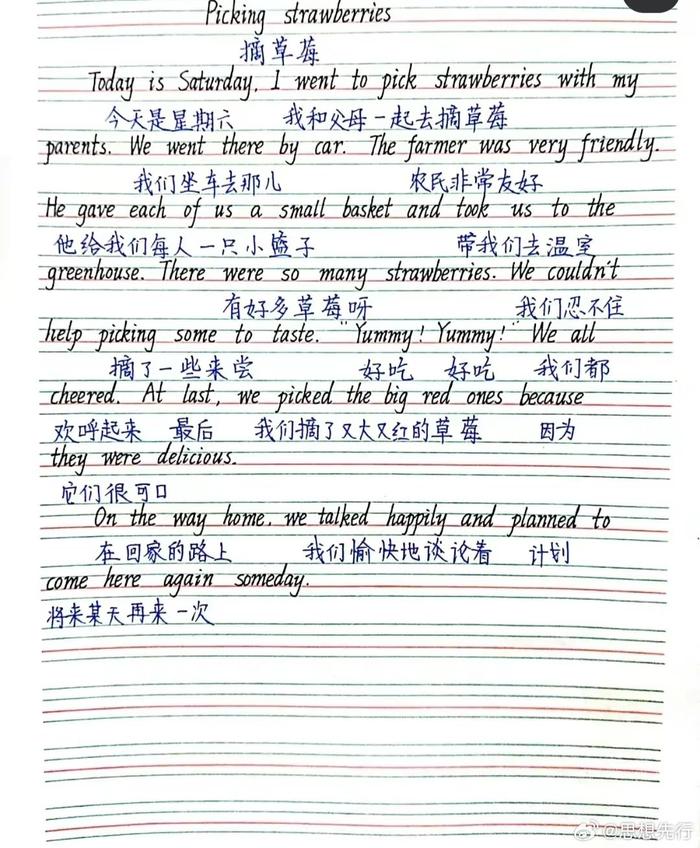 Picking strawberries
摘草莓
Today is Saturday. I went to pick strawberries with my
今天是星期六 我和父母一起去摘草莓
parents. We went there by car. The farmer was very friendly.
我们坐车去那儿 农民非常友好
He gave each of us a small basket and took us to the
他给我们每人一只小篮子 带我们去温室
greenhouse. There were so many strawberries. We couldn't
有好多草莓呀 我们忍不住
help picking some to taste. "Yummy! Yummy!" We all
摘了一些来尝 好吃 好吃 我们都
cheered. At last, we picked the big red ones because
欢呼起来 最后 我们摘了又大又红的草莓 因为
they were delicious.
它们很可口
On the way home, we talked happily and planned to
在回家的路上 我们愉快地谈论着 计划
come here again someday.
将来某天再来一次
@思想先行